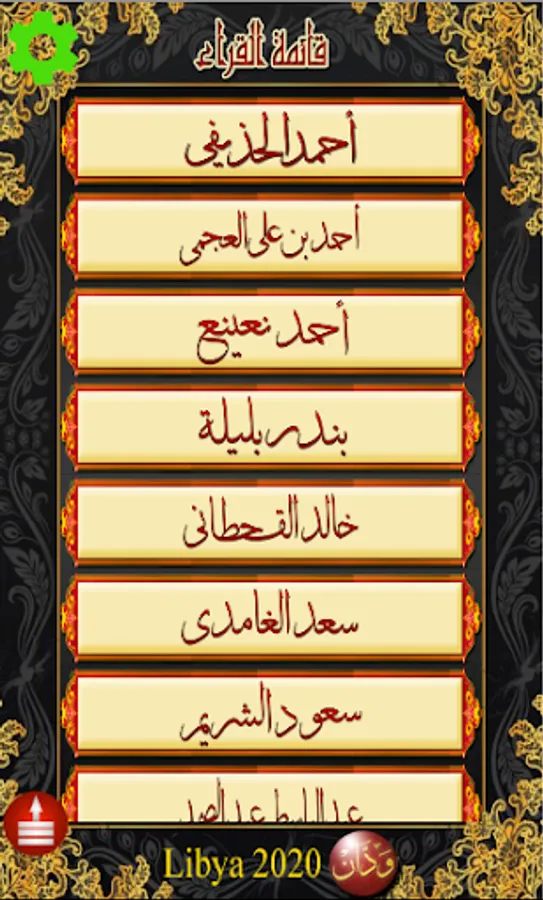 قائمة القراء
أحمد الحذيفي
أحمد بن على العجمى
أحمد نعينع
بندر بليلة
خالد القحطانى
سعد الغامدى
سعود الشريم
عبد الباسط عبد الصمد
Libya 2020 وَدَّان